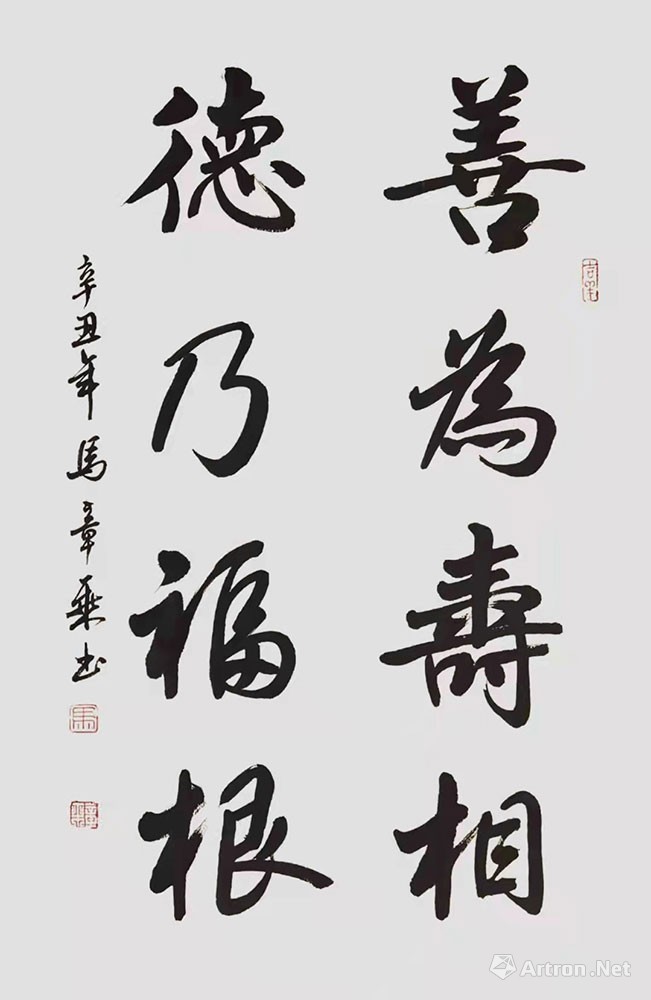 善為壽相
德乃福根
辛丑年馬章乘书
Artron.Net